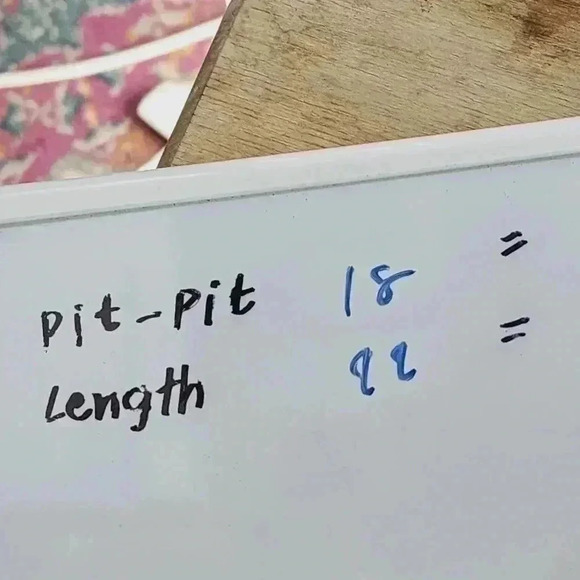 Pit-Pit 18 =
Length 22 =